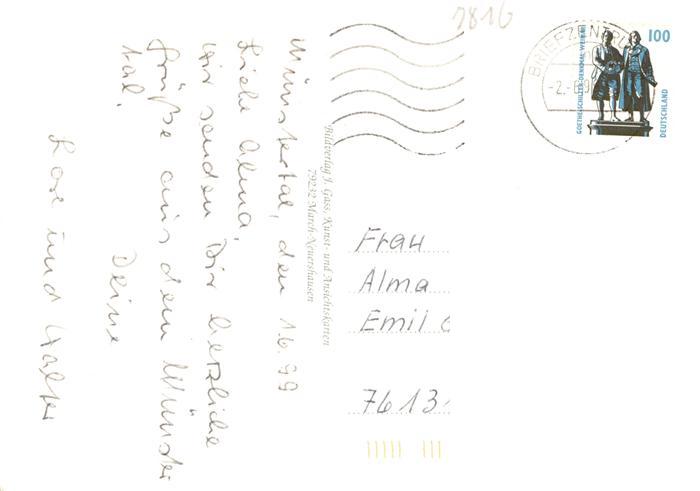 Münstertal, den 1.6.99
Liebe Alma,
Wir senden Dir herzliche
Grüße aus dem Münster
tal.
Deine
und Walter
Bildverlag J. Gass, Kunst- und Ansichtskarten
79232 March-Neuershausen
2816
BRIEFZENTRU
-2.-6.9
GOETHE-SCHILLER-DENKMAL WEIMAR
100
DEUTSCHLAND
Frau
Alma
Emil
7613